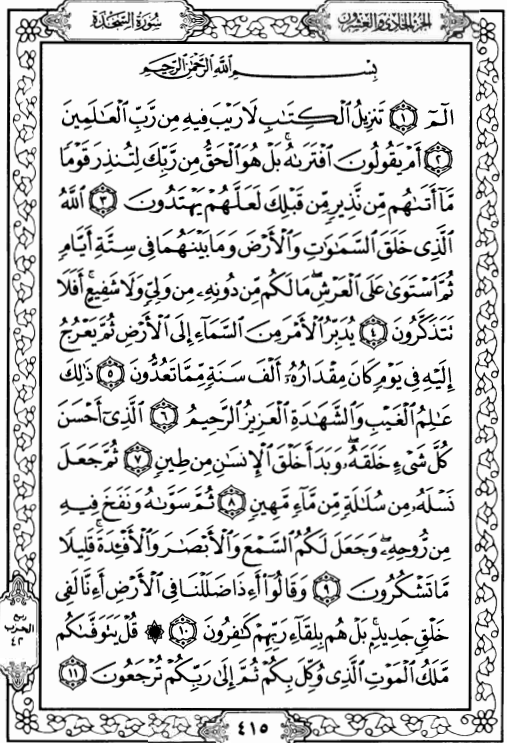 الجزء الحادي والعشرون
سُورَةُ السَّجْدَة
بِسْمِ ٱللَّهِ ٱلرَّحْمَٰنِ ٱلرَّحِيمِ
الٓمٓ ١ تَنزِيلُ ٱلْكِتَٰبِ لَا رَيْبَ فِيهِ مِن رَّبِّ ٱلْعَٰلَمِينَ
٢ أَمْ يَقُولُونَ ٱفْتَرَىٰهُۚ بَلْ هُوَ ٱلْحَقُّ مِن رَّبِّكَ لِتُنذِرَ قَوْمًا
مَّآ أَتَىٰهُم مِّن نَّذِيرٍ مِّن قَبْلِكَ لَعَلَّهُمْ يَهْتَدُونَ ٣ ٱللَّهُ
ٱلَّذِى خَلَقَ ٱلسَّمَٰوَٰتِ وَٱلْأَرْضَ وَمَا بَيْنَهُمَا فِى سِتَّةِ أَيَّامٍ
ثُمَّ ٱسْتَوَىٰ عَلَى ٱلْعَرْشِۖ مَا لَكُم مِّن دُونِهِۦ مِن وَلِىٍّ وَلَا شَفِيعٍۚ أَفَلَا
تَتَذَكَّرُونَ ٤ يُدَبِّرُ ٱلْأَمْرَ مِنَ ٱلسَّمَآءِ إِلَى ٱلْأَرْضِ ثُمَّ يَعْرُجُ
إِلَيْهِ فِى يَوْمٍ كَانَ مِقْدَارُهُۥٓ أَلْفَ سَنَةٍ مِّمَّا تَعُدُّونَ ٥ ذَٰلِكَ
عَٰلِمُ ٱلْغَيْبِ وَٱلشَّهَٰدَةِ ٱلْعَزِيزُ ٱلرَّحِيمُ ٦ ٱلَّذِىٓ أَحْسَنَ
كُلَّ شَىْءٍ خَلَقَهُۥۖ وَبَدَأَ خَلْقَ ٱلْإِنسَٰنِ مِن طِينٍ ٧ ثُمَّ جَعَلَ
نَسْلَهُۥ مِن سُلَٰلَةٍ مِّن مَّآءٍ مَّهِينٍ ٨ ثُمَّ سَوَّىٰهُ وَنَفَخَ فِيهِ
مِن رُّوحِهِۦۖ وَجَعَلَ لَكُمُ ٱلسَّمْعَ وَٱلْأَبْصَٰرَ وَٱلْأَفْـِٔدَةَۚ قَلِيلًا
مَّا تَشْكُرُونَ ٩ وَقَالُوٓا۟ أَءِذَا ضَلَلْنَا فِى ٱلْأَرْضِ أَءِنَّا لَفِى
خَلْقٍ جَدِيدٍۭۚ بَلْ هُم بِلِقَآءِ رَبِّهِمْ كَٰفِرُونَ ١٠ ۞ قُلْ يَتَوَفَّىٰكُم
مَّلَكُ ٱلْمَوْتِ ٱلَّذِى وُكِّلَ بِكُمْ ثُمَّ إِلَىٰ رَبِّكُمْ تُرْجَعُونَ ١١
ربع
الحزب
٤٢
٤١٥